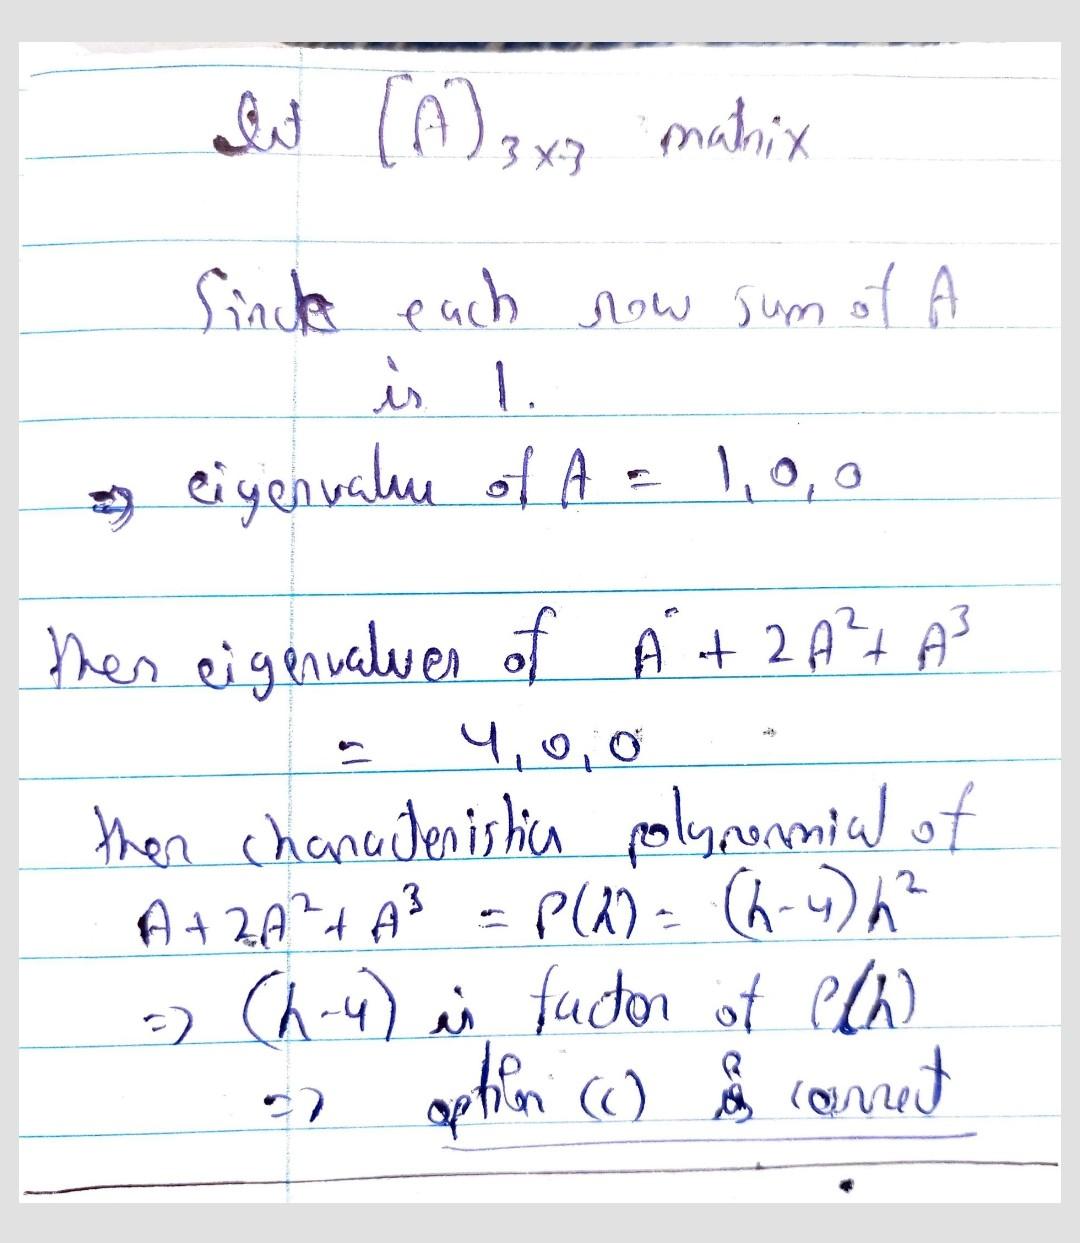 let [A]3×3 matrix
Since each row sum of A
is 1.
⇒ eigenvalue of A = 1, 0, 0
then eigenvalues of A + 2A² + A³
= 4, 0, 0
then characteristics polynomial of
A + 2A² + A³ = P(λ) = (λ-4)λ²
=> (λ-4) is factor of P(λ)
=> option (c) is correct